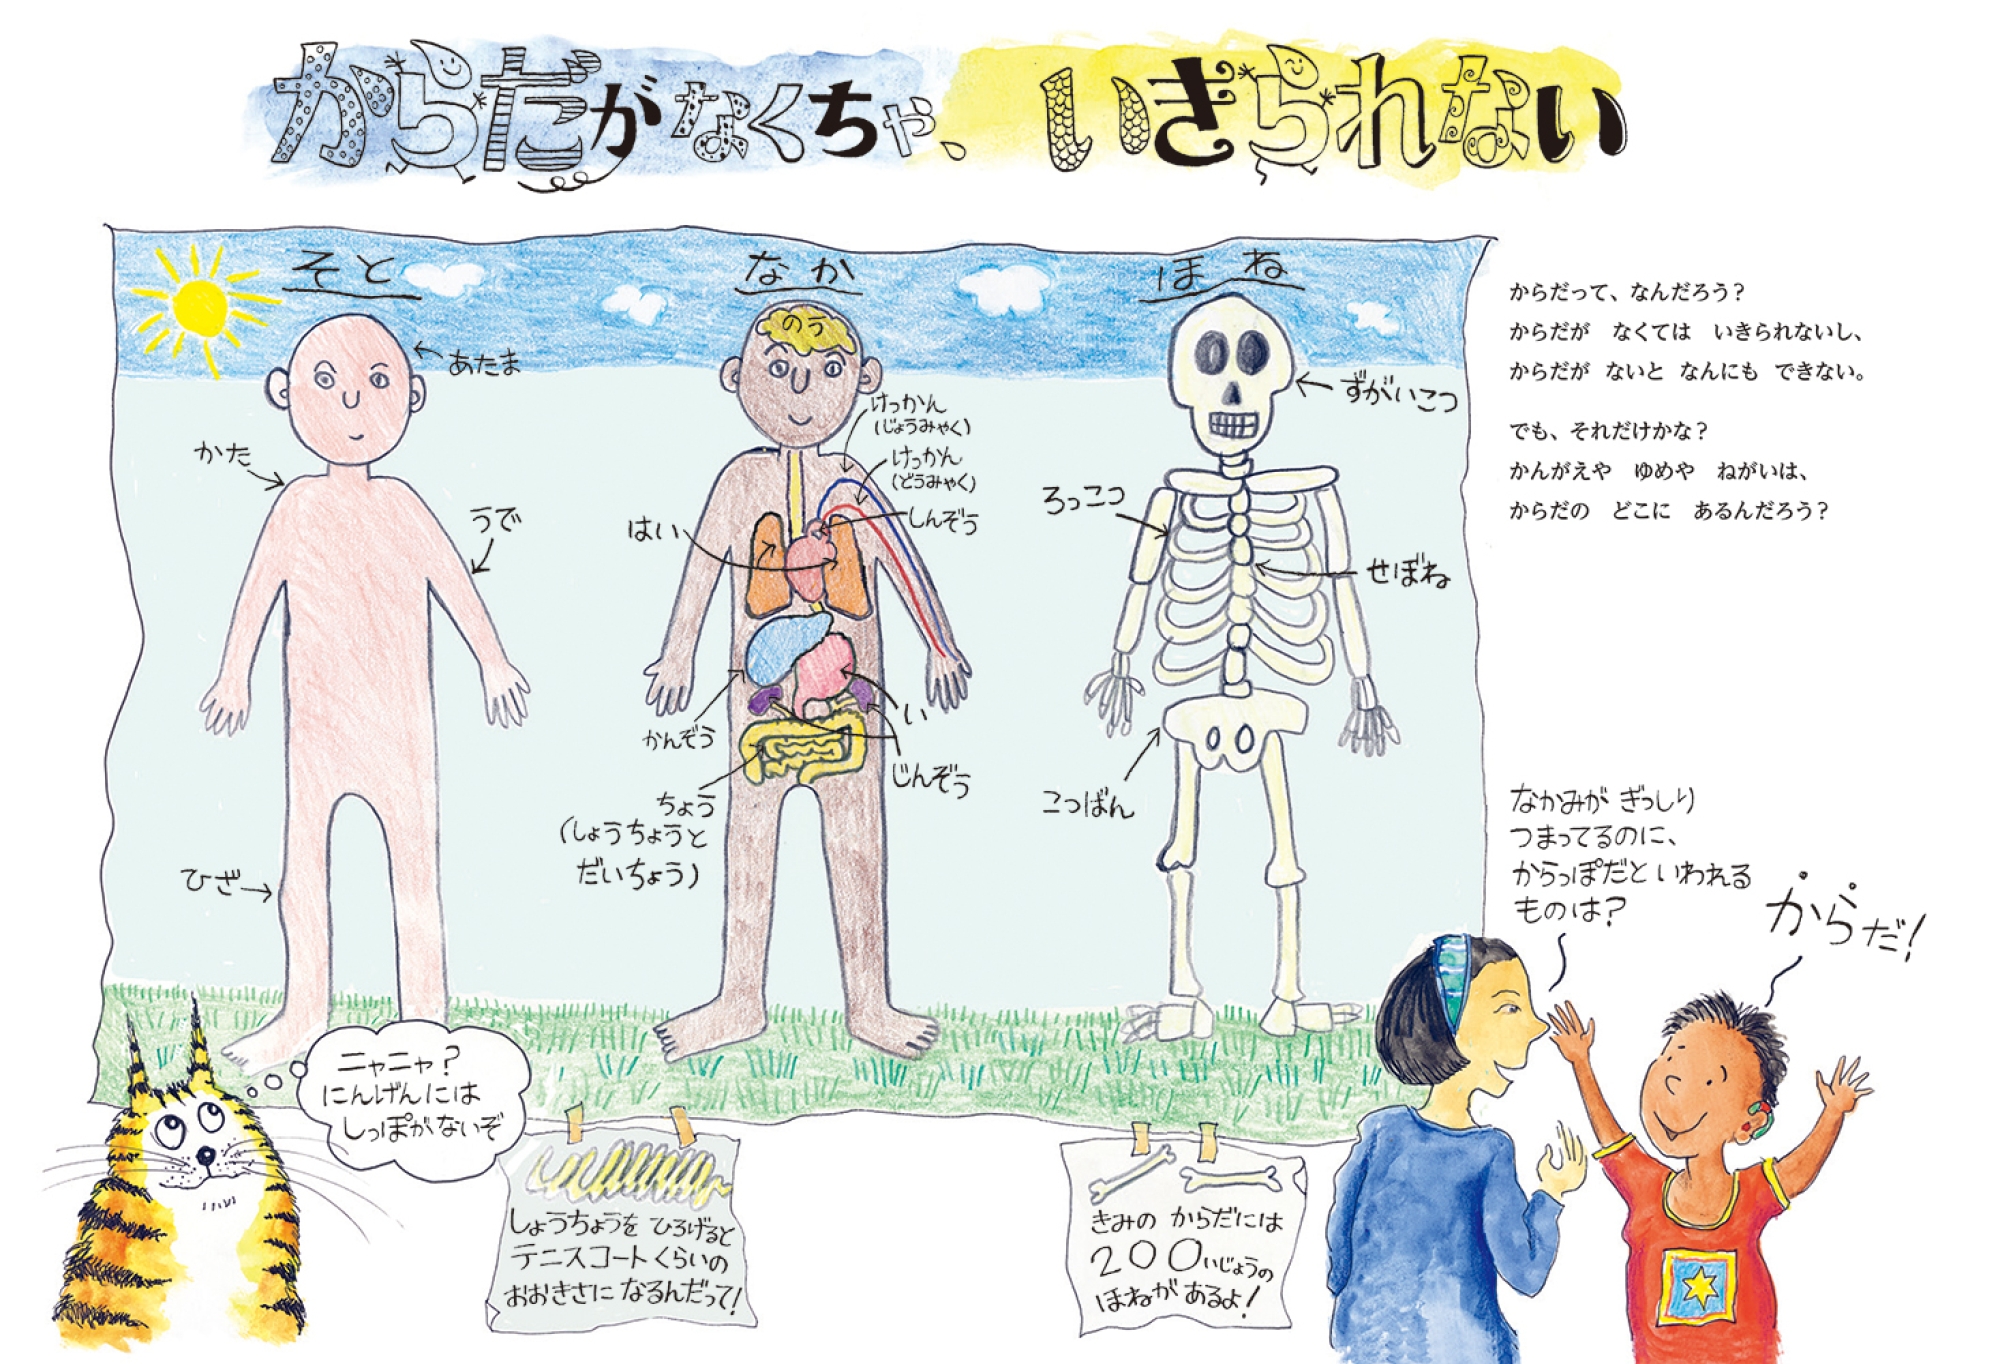 からだがなくちゃ、いきられない
からだって、なんだろう？
からだが なくては いきられないし、
からだが ないと なんにも できない。
でも、それだけかな？
かんがえや ゆめや ねがいは、
からだの どこに あるんだろう？
そと
あたま
かた
うで
ひざ
なか
のう
けっかん
(じょうみゃく)
けっかん
(どうみゃく)
しんぞう
はい
かんぞう
い
じんぞう
ちょう
(しょうちょうと
だいちょう)
ほね
ずがいこつ
ろっこつ
せぼね
こつばん
なかみが ぎっしり
つまってるのに、
からっぽだと いわれる
ものは？
からだ！
ニャニャ？
にんげんには
しっぽがないぞ
しょうちょうを ひろげると
テニスコートくらいの
おおきさに なるんだって！
きみの からだには
200いじょうの
ほねが あるよ！